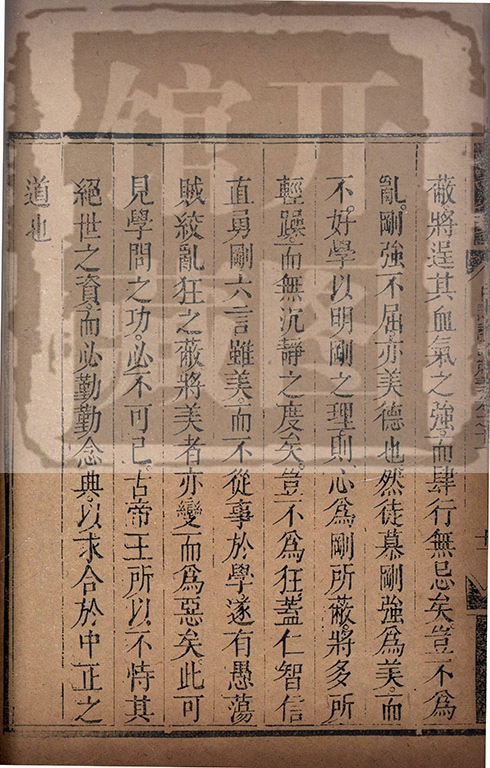 蔽將逞其血氣之強而肆行無忌矣豈不為
亂。剛強不屈亦美德也然徒慕剛強為美而
不好學以明剛之理則心為剛所蔽將多所
輕躁而無沉靜之度矣豈不為狂蓋仁智信
直勇剛六言雖美而不從事於學遂有愚蕩
賊絞亂狂之蔽將美者亦變而為惡矣此可
見學問之功必不可已。古帝王所以不恃其
絕世之資而必勤勤念典以求合於中正之
道也